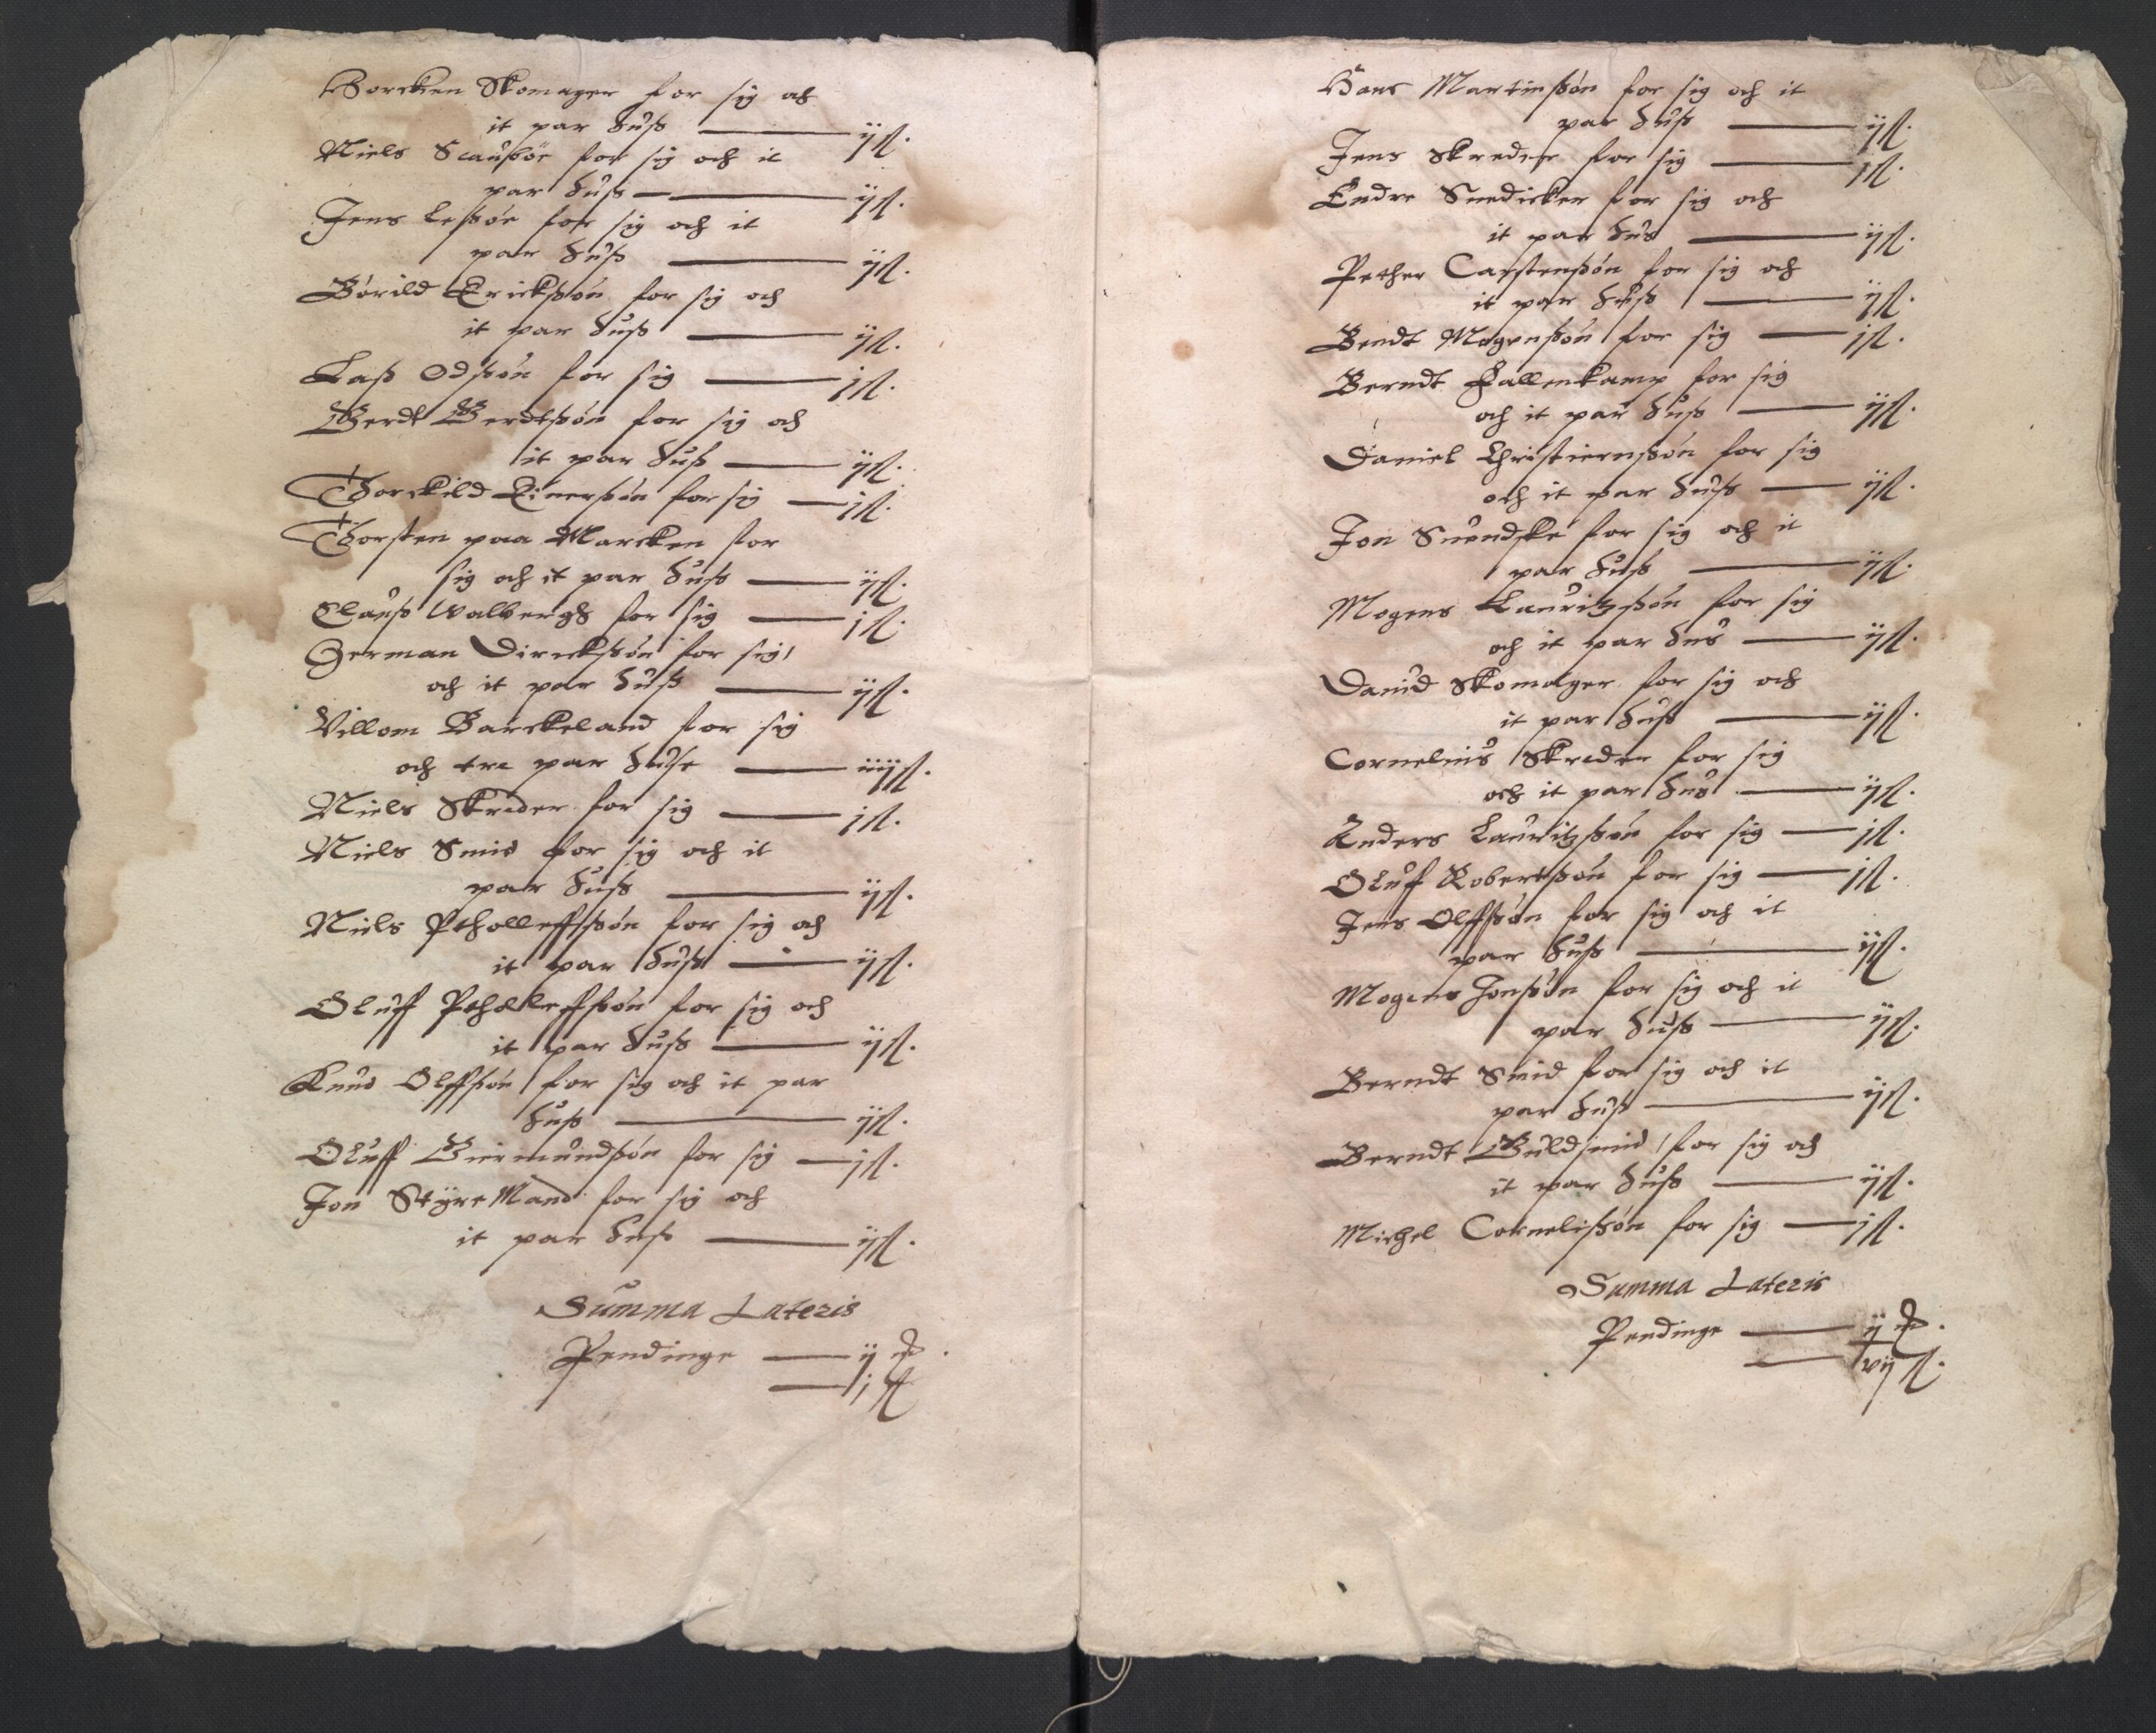 Borcken Skomager for sig och
it par Huß ij ß.
Niels Scaußór for sig och it
par Huß ij ß.
Jens Leßór for sig och it
par Huß ij ß.
Bórild Erickßón for sig och
it par Huß ij ß.
Laß Odßón for sig j ß.
Gerdt Gerdtßón for sig och
it par Huß ij ß.
Thorckild Einerßón for sig j ß.
Thorsten paa Marcken for
sig och it par Huß ij ß.
Clauß Walbergh for sig j ß.
Herman Dirickßón for sig
och it par Huß ij ß.
Villom Barckeland for sig
och tre par Huse iiij ß.
Niels Skreder for sig j ß.
Niels Smid for sig och it
par Huß ij ß.
Niels Ptholleffßón for sig och
it par Huß ij ß.
Oluff Ptholleffßón for sig och
it par Huß ij ß.
Knud Olffßón for sig och it par
Huß ij ß.
Oluff Giermundßón for sig j ß.
Jon Stÿre Mand for sig och
it par Huß ij ß.
Summa Lateris
Pendinge ij
j ß
Hans Martinßón for sig och it
par Huß ij ß.
Jens Skreder for sig j ß.
Endre Snedicker for sig och
it par Hus ij ß.
Pether Carstenßón for sig och
it par Huß ij ß.
Bendt Mogenßón for sig j ß.
Berndt Hallenkamp for sig
och it par Huß ij ß.
Daniel Christiernßón for sig
och it par Huß ij ß.
Jon Suendske for sig och it
par Huß ij ß.
Mogens Lauritzßón for sig
och it par Hus ij ß.
Dauid Skomager for sig och
it par Huß ij ß.
Cornelius Skreder for sig
och it par Hus ij ß.
Anders Lauritzßón for sig j ß.
Oluf Robertßón for sig j ß.
Jens Olffßón for sig och it
par Huß ij ß.
Mogens Jonßón for sig och it
par Huß ij ß.
Berndt Smid for sig och it
par Huß ij ß.
Berndt Guldsmid for sig och
it par Huß ij ß.
Michel Cornelißón for sig j ß.
Summa Lateris
Pendinge ij
vij ß.